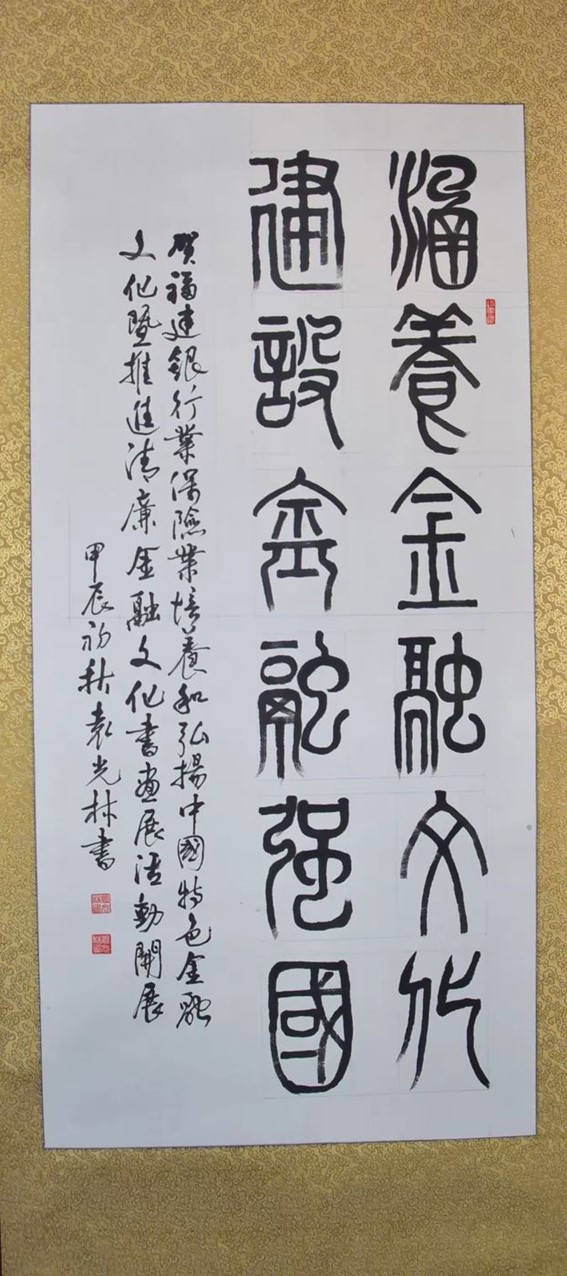 涵養金融文化
建設金融强國
賀福建銀行業保險業培養和弘揚中國特色金融
文化暨推進清廉金融文化書畫展活動開展
甲辰初秋袁光林書